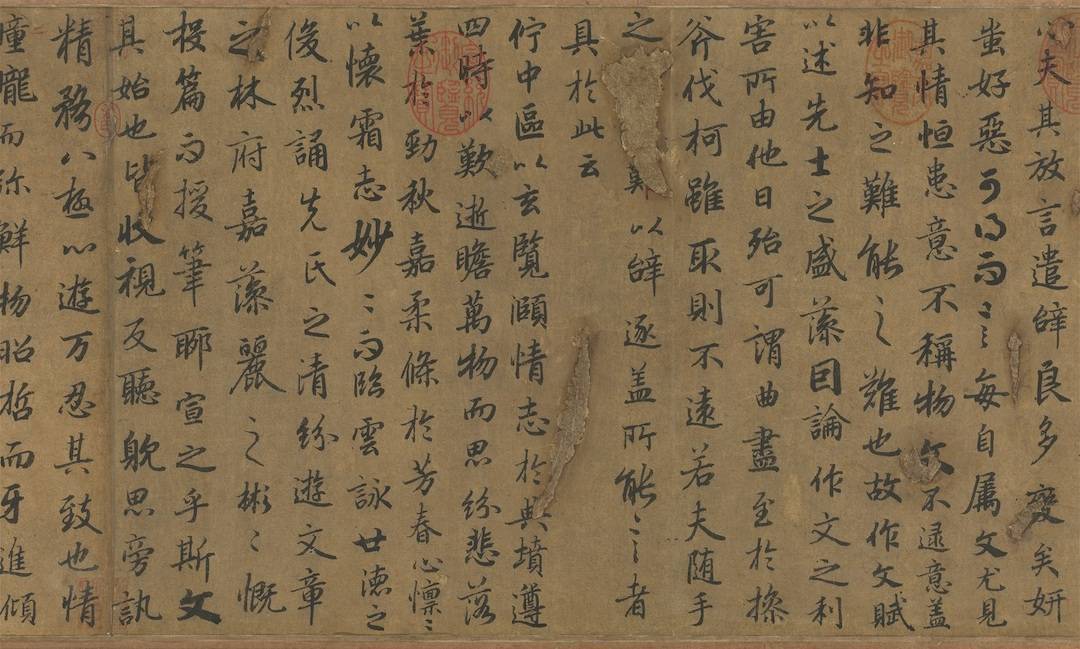 心夫其放言遣辭良多變矣妍
蚩好惡可得而言每自属文尤見
其情恒患意不稱物文不逮意盖
非知之難能之難也故作文賦
以述先士之盛藻因論作文之利
害所由他日殆可謂曲盡至於操
斧伐柯雖取則不遠若夫随手
之難以辭逐盖所能言者
具於此云
佇中區以玄覽頤情志於典墳遵
四時以歎逝瞻萬物而思紛悲落
葉於勁秋嘉柔條於芳春心懍〻
以懷霜志妙〻而臨雲詠世德之
俊烈誦先氏之清紛遊文章
之林府嘉藻麗之彬〻慨
投篇而援筆聊宣之乎斯文
其始也皆收視反聽躭思旁訊
精務八極心遊万忍其致也情
瞳曨而弥鮮物昭哲而牙進傾